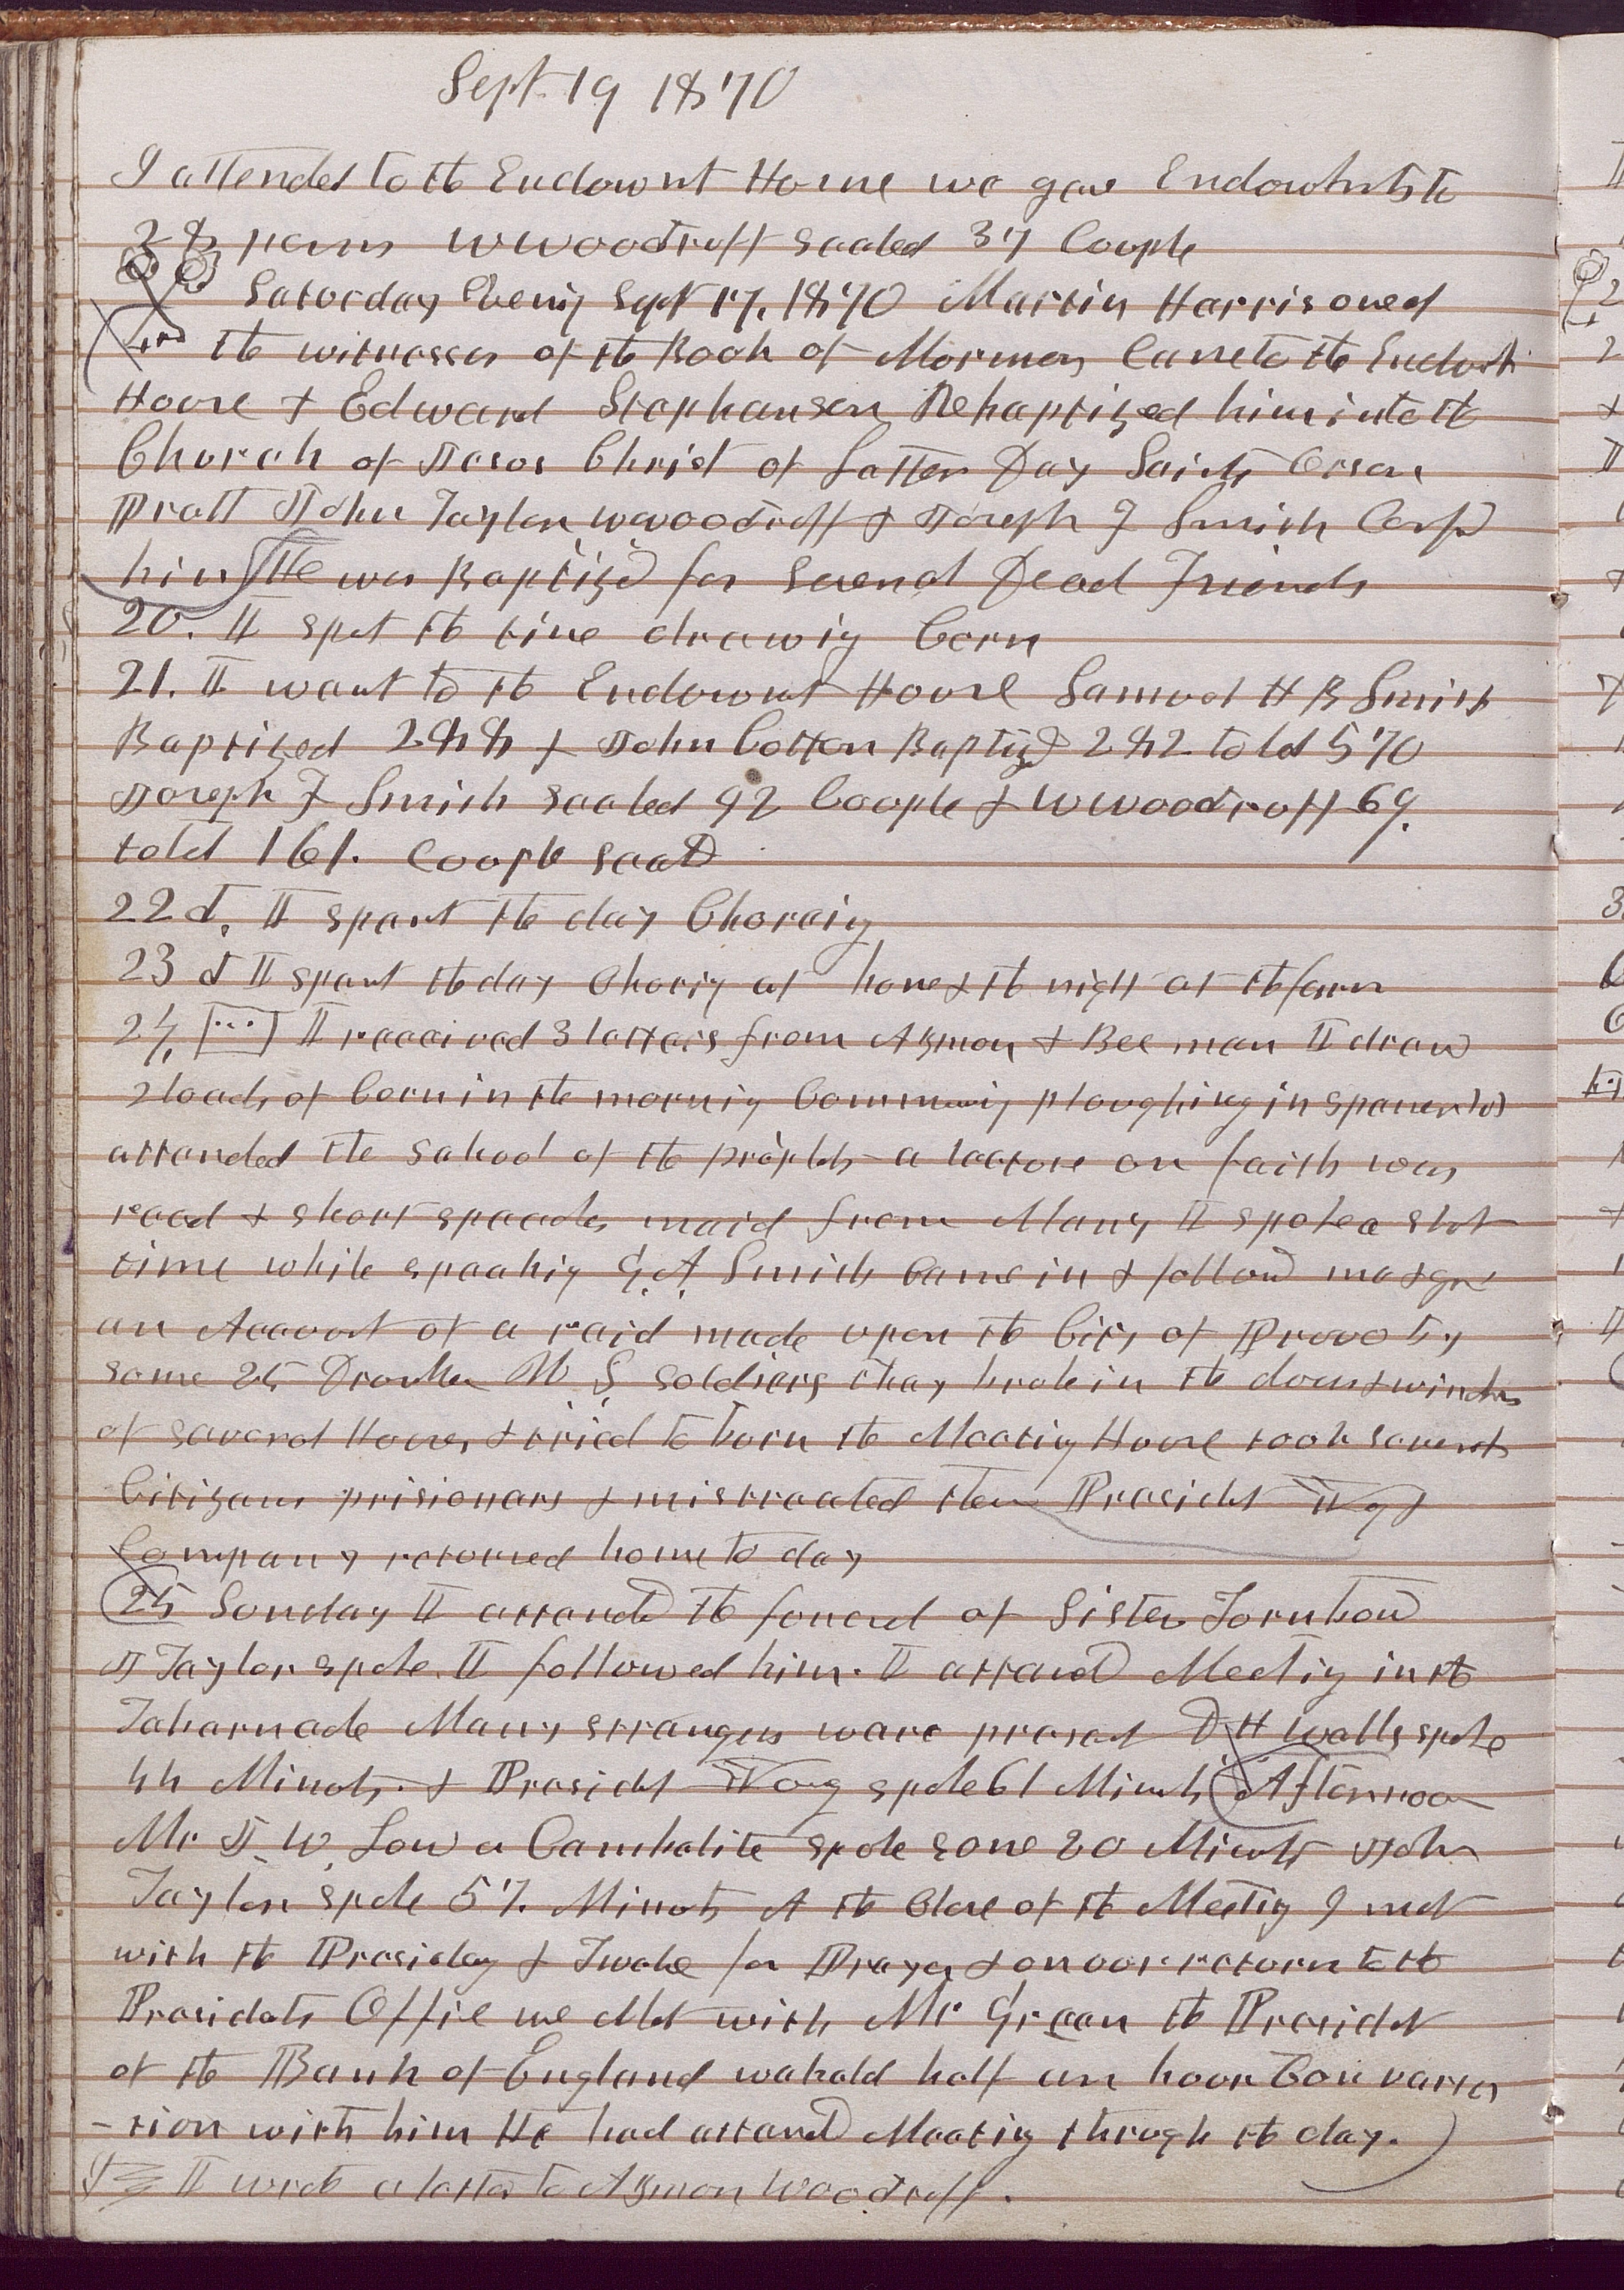 Sept. 19 1870
I attended to the Endowmt House we gave Endowmts to
28 persons W Woodruff sealed 37 Couple
Saturday Evening Sept 17, 1870 Martin Harris one of
the witnesses of the Book of Mormon Came to the Endowmt
House & Edward Stephenson Rebaptized him into the
Church of Jesus Christ of Latter Day Saints Orson
Pratt John Taylor W Woodruff & Joseph F Smith Confd
him He was Baptized for several Dead Friends
20. I spet the time drawig Corn
21. I went to the Endowmt House Samuel H B Smith
Baptized 288 & John Cotton Baptizd 282 total 570
Joseph F Smith sealed 92 Couple & W Woodruff 69.
total 161. Couple seald
22d. I spent the day Choreig
23d I spent the day Chorig at home & the night at the farm
24, I received 3 letters from Azmon & Bee man I drew
2 loads of Corn in the mornig Commencig ploughing in
attended the School of the prophets a lecture on faith was
read & short speeches maid from Many I spoke a shot
time while speakig G. A. Smith Came in & followd me & gave
an Account of a raid made upon the City of Provo by
some 25 Drunken U. S. soldiers they broke in the doors & windows
of several Houses & tried to burn the Meetig House took severals
Citizens prisioners & mistreated them Presidet Yg &
Company returned home to day
25 Sunday I attended the funeral of Sister Turnbow
J Taylor spoke. I followed him. I attend Meetig in the
Tabernacle Many strangers ware present D H Wells spoke
44 Minuts. & Presidet Young spoke 61 Minuts Afternoon
Mr J. W. Low a Cambelite spoke some 20 Minuts John
Taylor spoke 57. Minuts At the Close of the Meetig I met
with the Presidecy & Twelve for Prayer & on our return to the
Presidets Office we Met with Mr Green the Presidet
of the Bank of England we held half an hour Conversa
-tion with him He had attend Meetig through the day.
I wrote a letter to Azmon Woodruff.